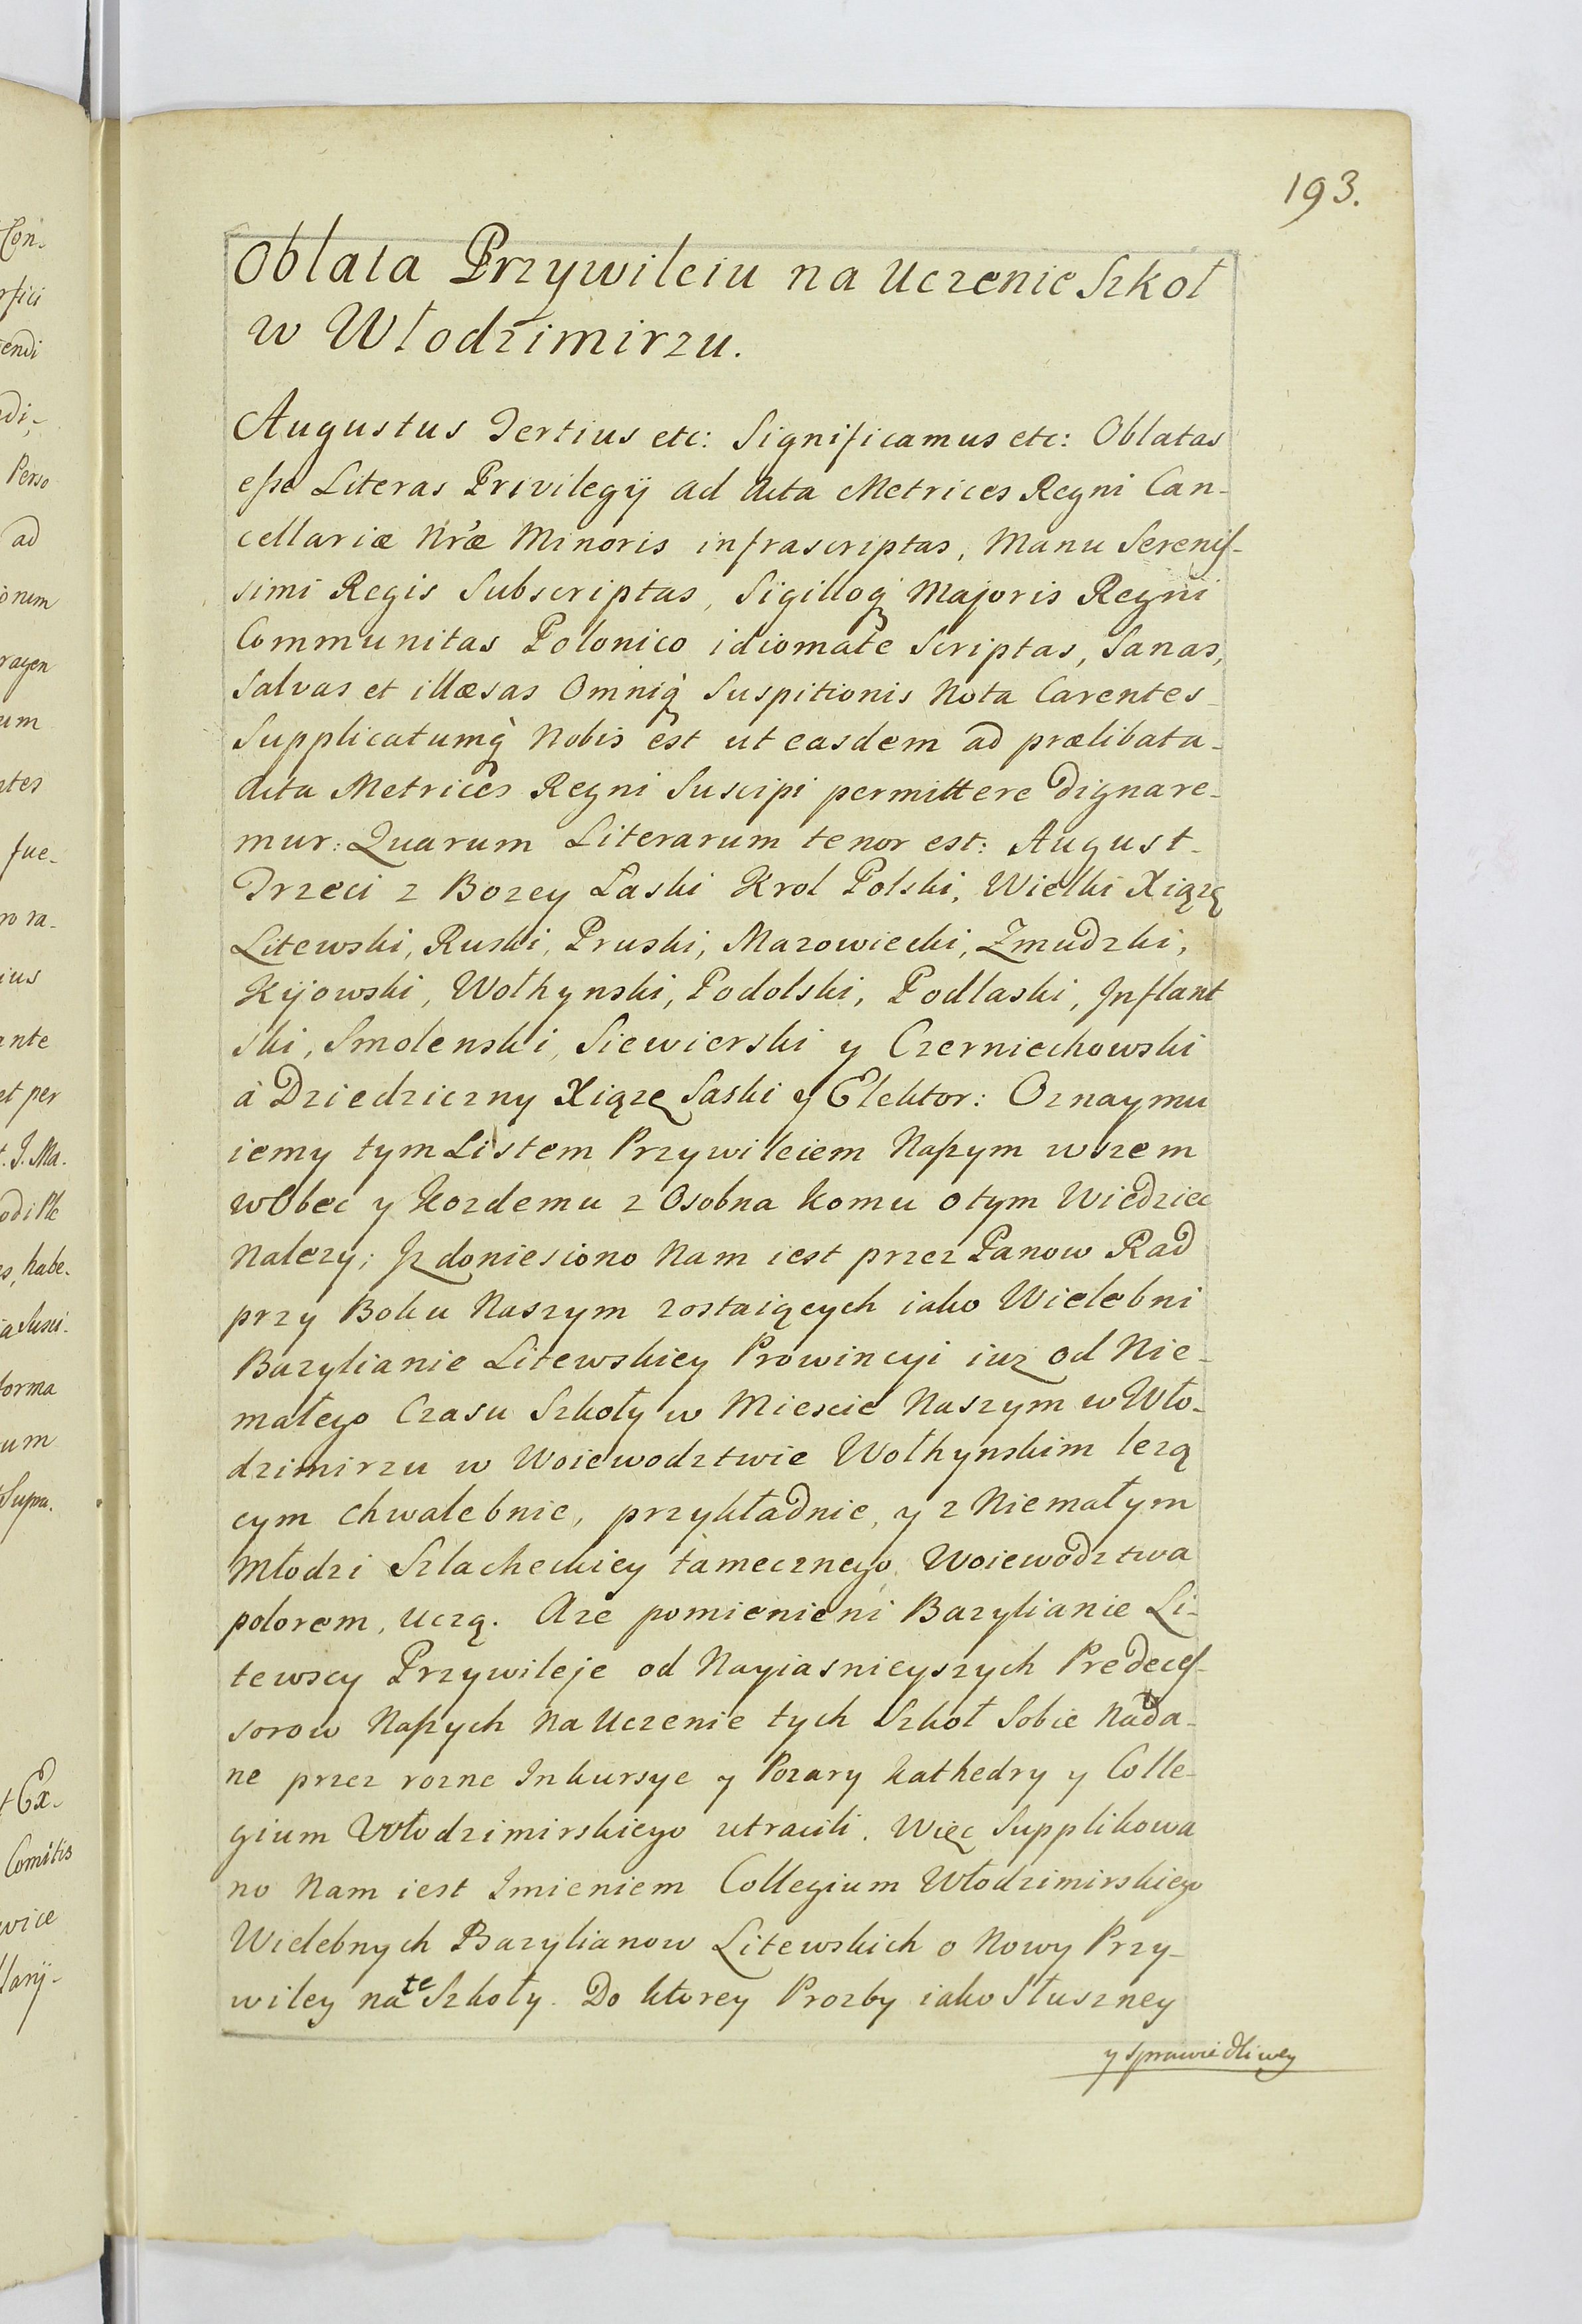 Con-
rfici
endi
di,-
Perso
ad
onem
ragen
um
ntes
fue-
ro ra-
ius
ante
et per
t. J. Ma.
odi Plc
es, habe-
ia Susci-
forma
um
Supra.
t Ex-
Comitis
wice
llarij-
193.
Oblata Przywileiu na Uczenie Szkoł
w Włodzimirzu.
Augustus Tertius etc: Significamus etc: Oblatas
eſse Literas Privilegÿ ad Acta Metrices Regni Can-
cellariæ Nræ Minoris infrascriptas, Manu Sereniſ-
simi Regis Subscriptas, Sigilloq; Majoris Regni
Communitas Polonico idiomate Scriptas, Sanas,
Salvas et illæsas Omniq; Suspitionis Nota Carentes
Supplicatumq; Nobis est ut easdem ad prælibata
Acta Metrices Regni Suscipi permittere dignare-
mur: Quarum Literarum tenor est: August
Trzeci z Bozey Łaski Krol Polski, Wielki Xiążę
Litewski, Ruski, Pruski, Mazowiecki, Zmudzki,
Kijowski, Wołhynski, Podolski, Podlaski, Inflant
ski, Smolenski, Siewierski y Czerniechowski
à Dziedziczny Xiąze Saski y Elektor: Oznaymu
iemy tym Listem Przywileiem Naſzym wszem
wObec y kozdemu z Osobna komu o tym Wiedziec
Nalezy; Iz doniesiono Nam iest przez Panow Rad
przy Boku Naszym zostaiących iako Wielebni
Bazylianie Litewskiey Prowincyi iuz od Nie-
małego Czasu Szkoły w Miescie Naszym w Wło-
dzimirzu w Woiewodztwie Wołhynskim lezą
cym chwalebnie, przykładnie, y z Niemałym
Młodzi Szlacheckiey tamecznego Woiewodztwa
polorem, uczą. Aze pomienieni Bazylianie Li-
tewscy Przywileje od Nayiasnieyszych Predeceſ-
sorow Naſzych Na Uczenie tych Szkoł Sobie Nada-
ne przez rozne Inkursye y Pozary Kathedry y Colle-
gium Włodzimirskiego utracili. Więc Supplikowa
no Nam iest Imieniem Collegium Włodzimirskiego
Wielebnych Bazylianow Litewskich o Nowy Przy-
wiley na te Szkoły. Do ktorey Prozby iako Słuszney
y sprawiedliwey